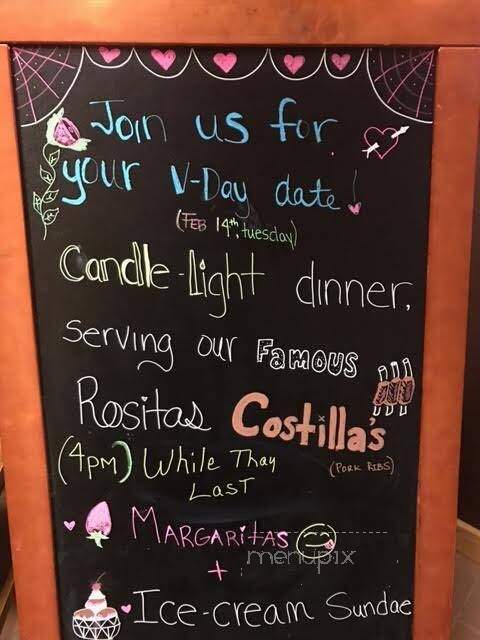 Join us for
your V-Day date!
(FEB 14th, tuesday)
Candle-Light dinner,
Serving our FAMOUS
Rositas Costilla's
(PORK RIBS)
(4PM) While Thay
LAST
MARGARITAS
menupix
+
Ice-cream Sundae